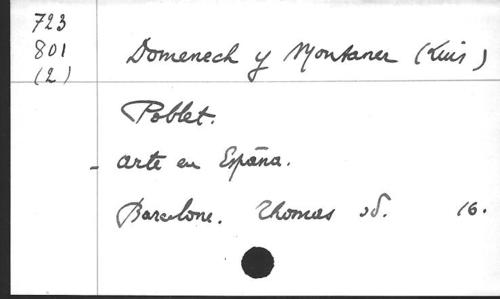 723
801
(2)
Domenech y Montaner (Luis)
Poblet.
- Arte en España.
Barcelone. Thomas ed. 16.